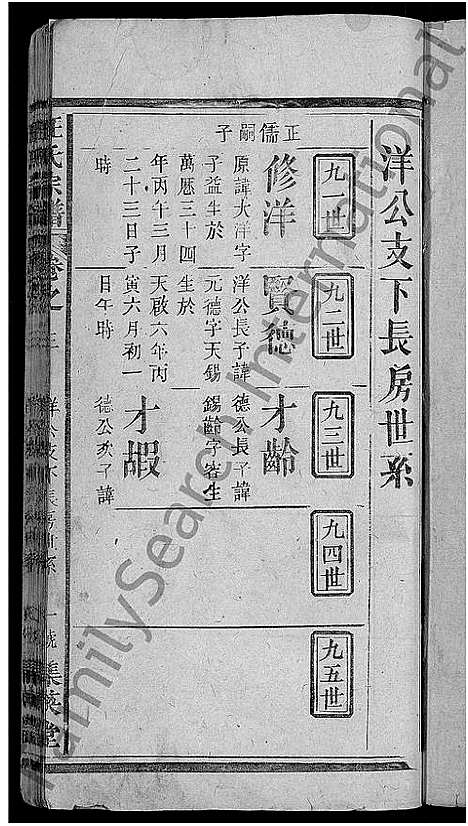 洋公支下長房世系
九一世
九二世
九三世
九四世
九五世
正儒嗣子
修洋
原諱大洋字
子益生於
萬曆三十四
年丙午三月
二十三日子
時
賢德
洋公長子諱
元德字天錫
生於
天啟六年丙
寅六月初一
日午時
才齡
德公長子諱
錫齡字容生
才嘏
德公次子諱
汪氏宗譜
卷之三
洋公支下長房世系
一號
集英堂
FamilySearch International